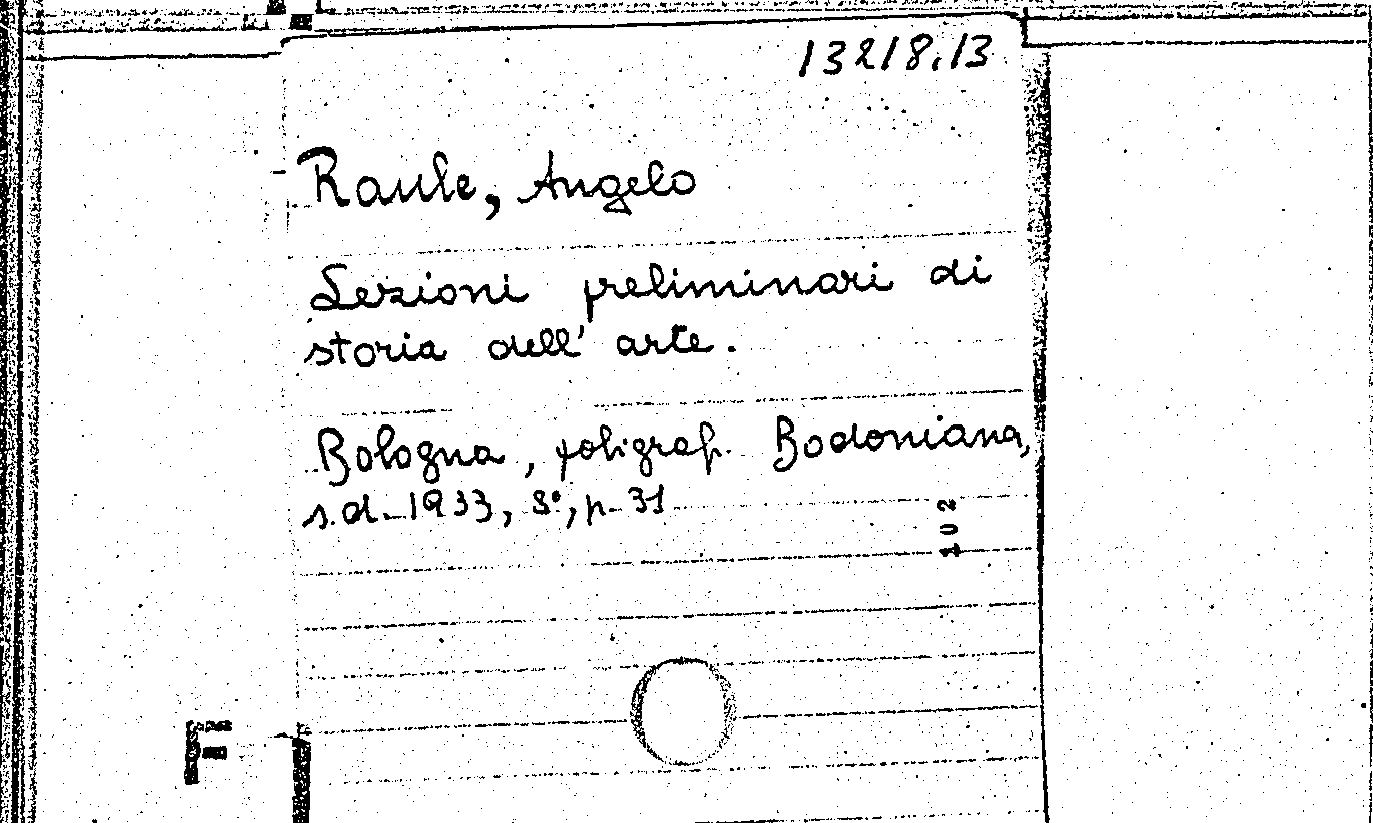 13218.13
Raule, Angelo
Lezioni preliminari di
storia dell' arte.
Bologna, poligraf. Bodoniana,
s.d. 1933, 8°, p. 31
102
F